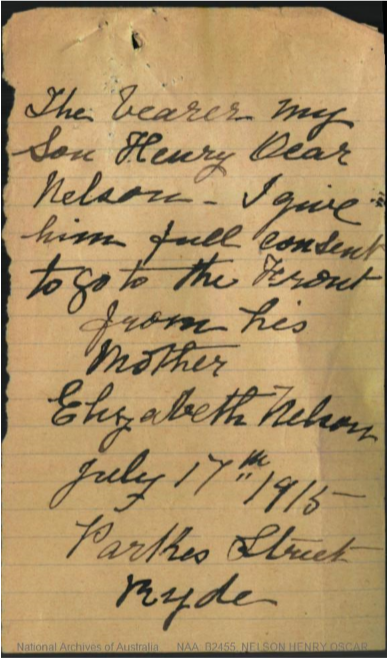 The bearer my
Son Henry Oscar
Nelson - I give
him full consent
to go to the Front
from his
Mother
Elizabeth Nelson
July 17th 1915
Parkes Street
Ryde
National Archives of Australia NAA: B2455, NELSON HENRY OSCAR